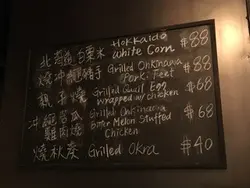 北海道白粟米 Hokkaido White Corn $88
燒沖繩豬手 Grilled Okinawa Pork Feet $88
Grilled Quail Egg wrapped w/ chicken $68
沖繩苦瓜雞肉燒 Grilled Okinawa Bitter Melon Stuffed Chicken $68
燒秋葵 Grilled Okra $40